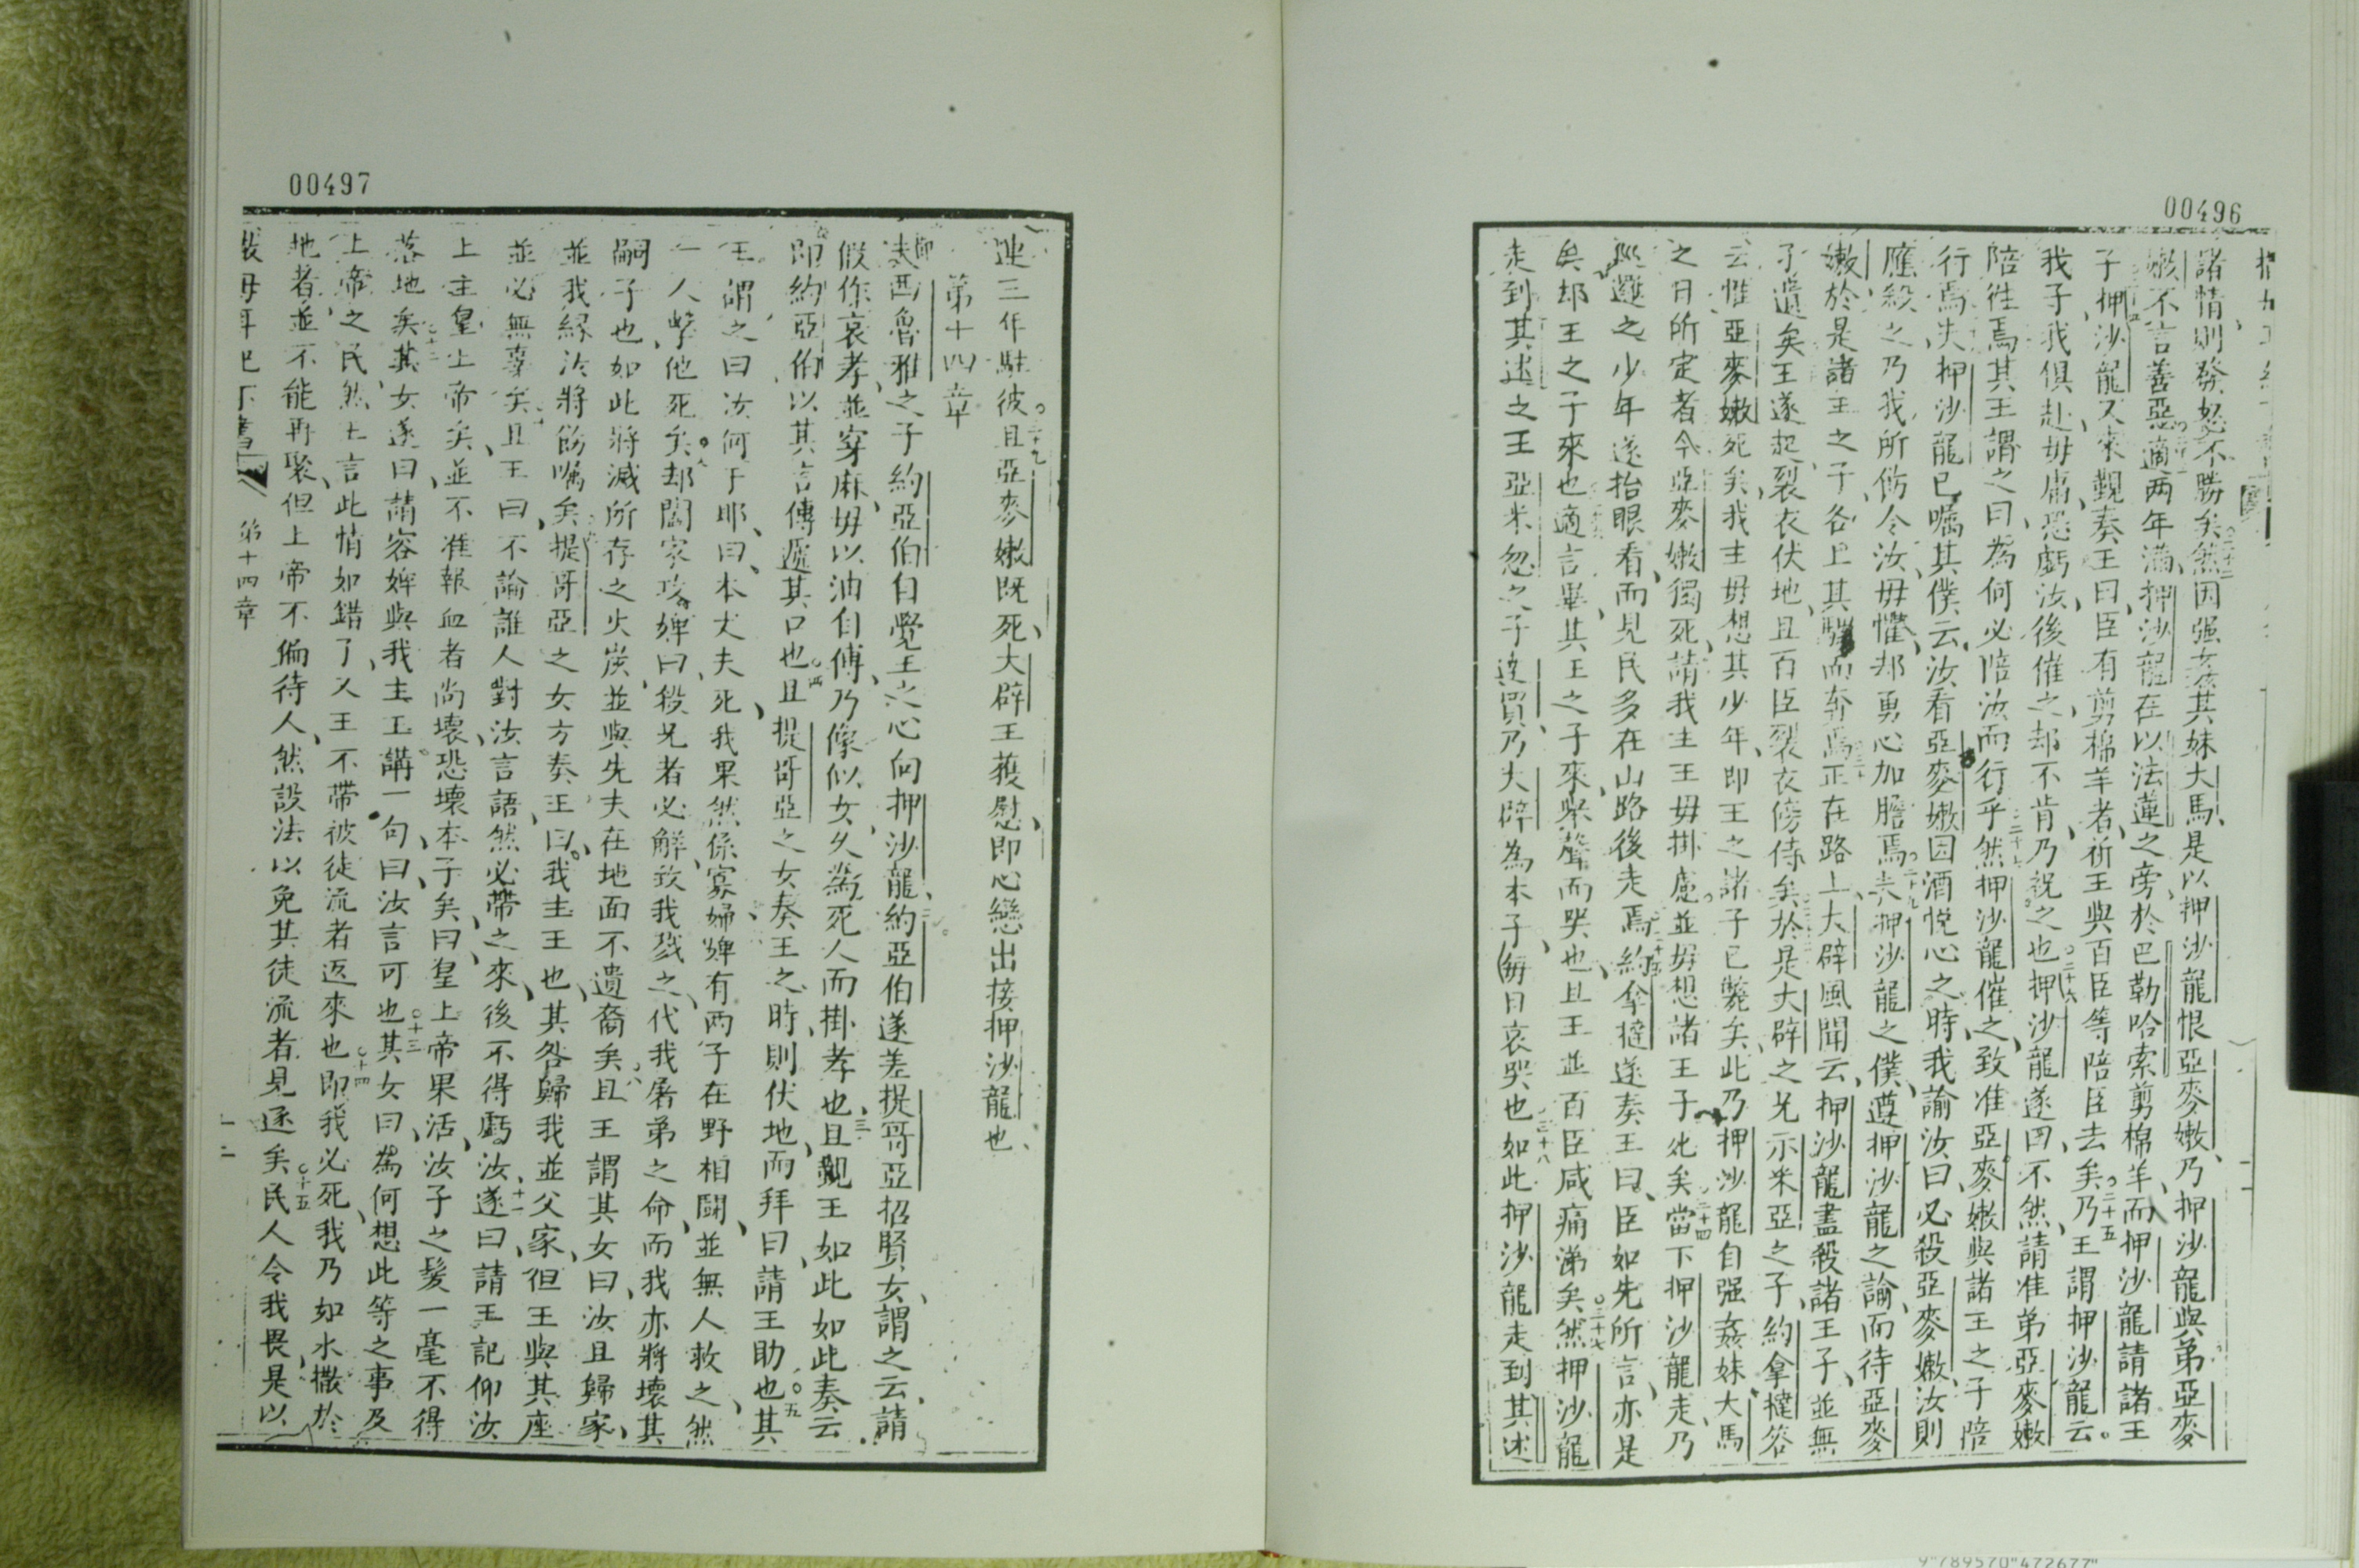 00496
諸情則發怒不勝矣然因强姦其妹大馬是以押沙龍恨亞麥嫩乃押沙龍與弟亞麥
嫩不言善惡適两年滿押沙龍在以法蓮之旁於巴勒哈索剪棉羊而押沙龍請諸王
子押沙龍又來覲奏王曰臣有剪棉羊者祈王與百臣等陪臣去矣二十五乃王謂押沙龍云
我子我俱赴毋庸恐虧汝後催之却不肯乃祝之也二十六押沙龍遂曰不然請准弟亞麥嫩
陪徃焉其王謂之曰為何必陪汝而行乎二十七然押沙龍催之致准亞麥嫩與諸王之子陪
行焉夫押沙龍已囑其僕云汝看亞麥嫩因酒悦心之時我諭汝曰必殺亞麥嫩汝則
應殺之乃我所飭令汝毋懼却勇心加膽焉二十九夫押沙龍之僕遵押沙龍之諭而待亞麥
嫩於是諸王之子各上其騾而奔焉三十正在路上大辟風聞云押沙龍盡殺諸王子並無
子遺矣王遂起裂衣伏地且百臣裂衣傍侍矣於是大辟之兄示米亞之子約拿撻答
云惟亞麥嫩死矣我主毋想其少年即王之諸子已斃矣此乃押沙龍自强姦妹大馬
之日所定者今亞麥嫩獨死請我主王毋掛慮並毋想諸王子死矣三十四當下押沙龍走乃
巡邏之少年遂抬眼看而見民多在山路後走焉三十五約拿撻遂奏王曰臣如先所言亦是
矣却王之子來也適言畢其王之子來舉聲而哭也且王並百臣咸痛涕矣三十七然押沙龍
走到其述之王亞米忽之子達買乃大辟為本子毎日哀哭也三十八如此押沙龍走到其述
00497
連三年駐彼三十九且亞麥嫩既死大辟王獲慰即心戀出接押沙龍也
第十四章
夫西魯雅之子約亞伯自覺王之心向押沙龍二約亞伯遂差提哥亞招賢女謂之云請
假作哀孝並穿麻毋以油自傅乃像似女久為死人而掛孝也三且覲王如此如此奏云
即約亞伯以其言傳遞其口也四且提哥亞之女奏王之時則伏地而拜曰請王助也五其
王謂之曰汝何于耶曰本丈夫死我果然係寡婦六婢有两子在野相鬪並無人救之然
一人擊他死矣七却闔家攻婢曰殺兄者必解致我戮之代我屠弟之命而我亦將壞其
嗣子也如此將滅所存之火炭並與先夫在地面不遺裔矣八且王謂其女曰汝且歸家
並我緣汝將飭囑矣九提哥亞之女方奏王曰我主王也其咎歸我並父家但王與其座
並必無辜矣十且王曰不論誰人對汝言語然必帶之來後不得虧汝十一遂曰請王記仰汝
上主皇上帝矣並不准報血者尚壞恐壞本子矣曰皇上帝果活汝子之髮一毫不得
落地矣十二其女遂曰請容婢與我主王講一句曰汝言可也十三其女曰為何想此等之事及
上帝之民然王言此情如錯了乂王不帶被徒流者返來也十四即我必死我乃如水撒於
地者並不能再聚但上帝不偏待人然設法以免其徒流者見逐矣十五民人令我畏是以
第十四章